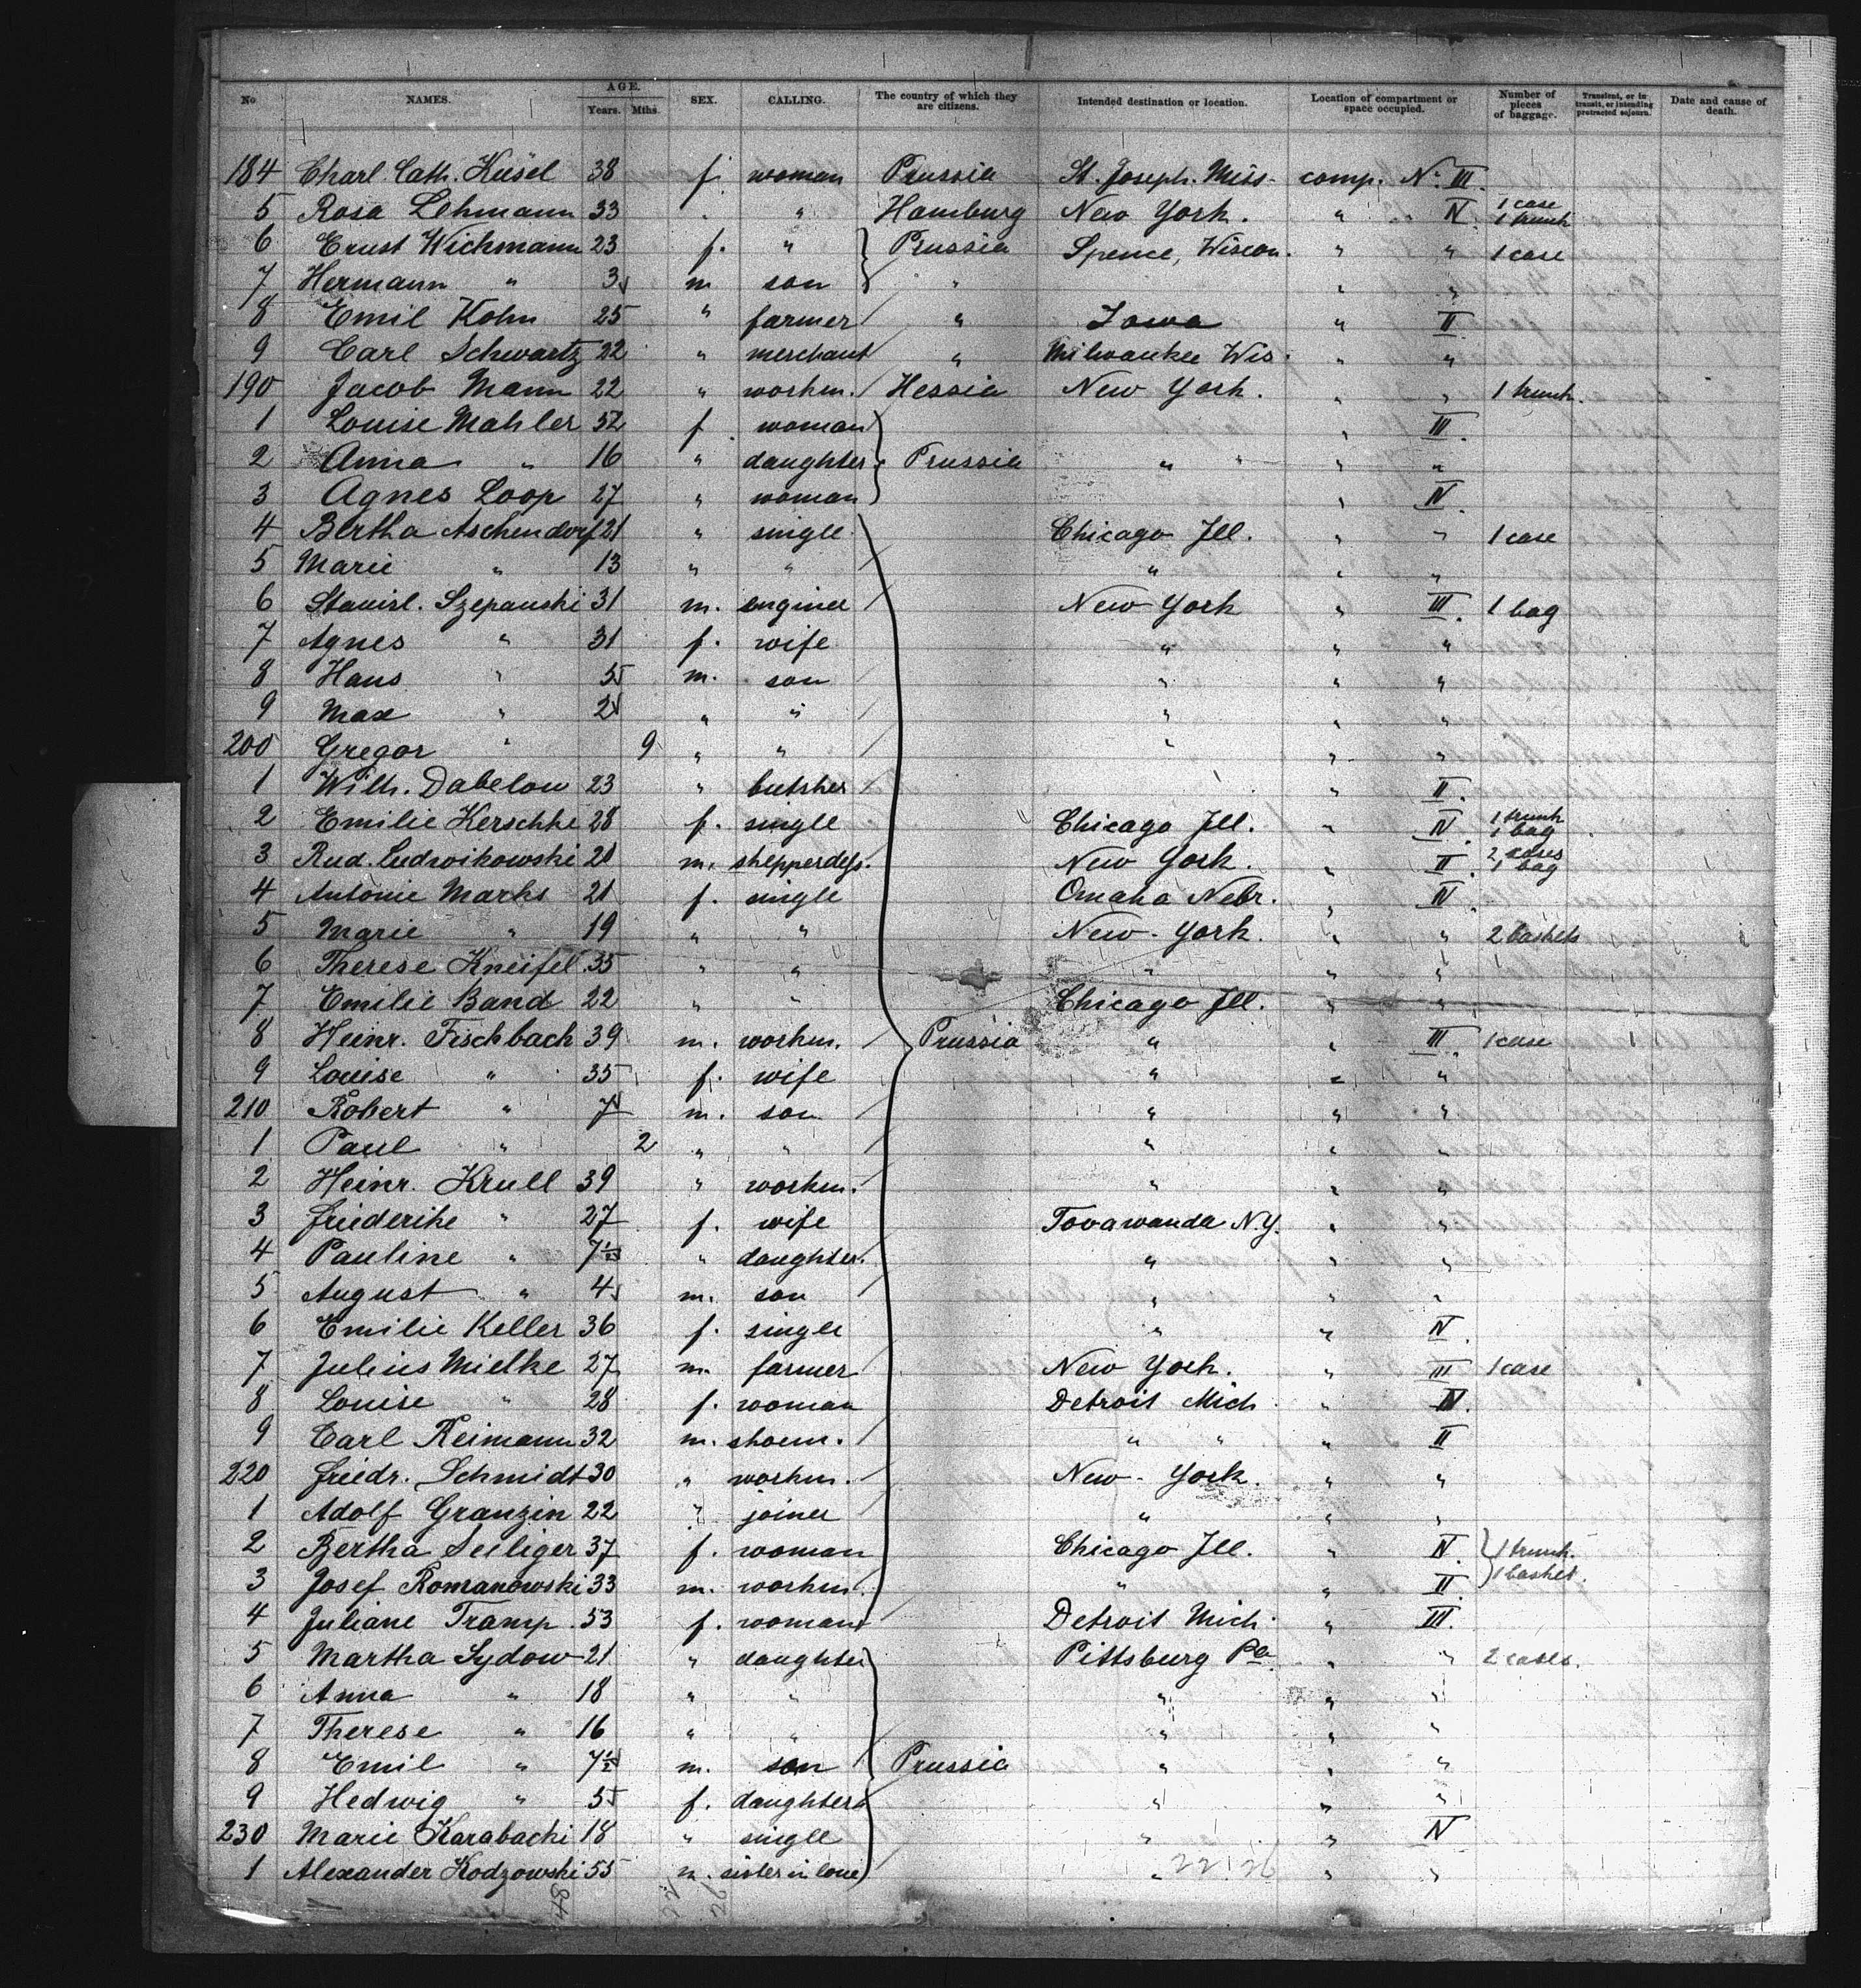 No NAMES. AGE. Years. Mths. SEX. CALLING. The country of which they are citizens. Intended destination or location. Location of compartment or space occupied. Number of pieces of baggage. Transient, or in transit, or intending protracted sojourn. Date and cause of death.
184 Charl. Cath. Küsel 38 f. woman Prussia St. Joseph. Miss. comp. No. III.
5 Rosa Lehmann 33 " " Hamburg New York. " " IV. 1 case 1 trunk
6 Ernst Wichmann 23 f. " Prussia Spence, Wiscon. " " 1 case
7 Hermann " 3 m son " " "
8 Emil Kohn 25 " farmer " Iowa " II
9 Carl Schwartz 22 " merchant " Milwaukee Wis. " "
190 Jacob Mann 22 " workm. Hessia New York. " " 1 trunk.
1 Louise Mahler 52 f. woman " III.
2 Anna " 16 " daughter Prussia " " " "
3 Agnes Loop 27 " woman " IV.
4 Bertha Aschendorf 21 " single Chicago Ill. " " 1 case
5 Marie " 13 " " " " "
6 Stanisl. Szepanski 31 m. enginer New York " III. 1 bag
7 Agnes " 31 f. wife " " "
8 Hans " 5 m. son " " "
9 Max " 2 " " " " "
200 Gregor " 9 " " " " "
1 Wilh. Dabelow 23 " butsher " II.
2 Emilie Kerschke 28 f. single Chicago Ill. " IV. 1 trunk 1 bag
3 Rud. Ludwikowski 20 m. New York. " II. 2 cases 1 bag
4 Antonie Marks 21 f. single Omaha Nebr. " IV.
5 Marie " 19 " " New-York. " " 2 baskets
6 Therese Kneifel 35 " " " " "
7 Emilie Band 22 " " Chicago Ill. " "
8 Heinr. Fischbach 39 m. workm. Prussia " " III. 1 case
9 Louise " 35 f. wife " " "
210 Robert " 7 m. son " " "
1 Paul " 2 " " " " "
2 Heinr. Krull 39 " workm. " " "
3 Friederike " 27 f. wife Tovawanda N.Y. " "
4 Pauline " 7½ " daughter. " " "
5 August " 4 m. son " " "
6 Emilie Keller 36 f. single " " IV.
7 Julius Mielke 27 m. farmer New York. " III 1 case
8 Louise " 28 f. woman Detroit Mich. " IV.
9 Carl Reimann 32 m. shoem. " " " II
220 Friedr. Schmidt 30 " workm. New-York. " "
1 Adolf Granzin 22 " joiner " " "
2 Bertha Seiliger 37 f. woman Chicago Ill. " IV. 1 trunk.
3 Josef Romanowski 33 m. workm. " " II. 1 basket.
4 Juliane Tramp. 53 f. woman Detroit Mich. " III.
5 Martha Sydow 21 " daughter Pittsburg Pa. " " 2 cases.
6 Anna " 18 " " " " "
7 Therese " 16 " " " " "
8 Emil " 7½ m. son Prussia " " "
9 Hedwig " 5 f. daughter " " "
230 Marie Karabacki 18 " single " " IV
1 Alexander Kodzowski 55 m. sister in lowe " 22 26 " "
48 22 26